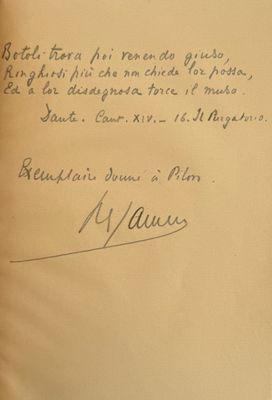 Botoli trova poi venendo giuso,
Ringhiosi più che non chiede lor possa,
Ed a lor disdegnosa torce il muso.
Dante. Cant. XIV. – 16. Il Purgatorio.
Exemplaire donné à Pilon.